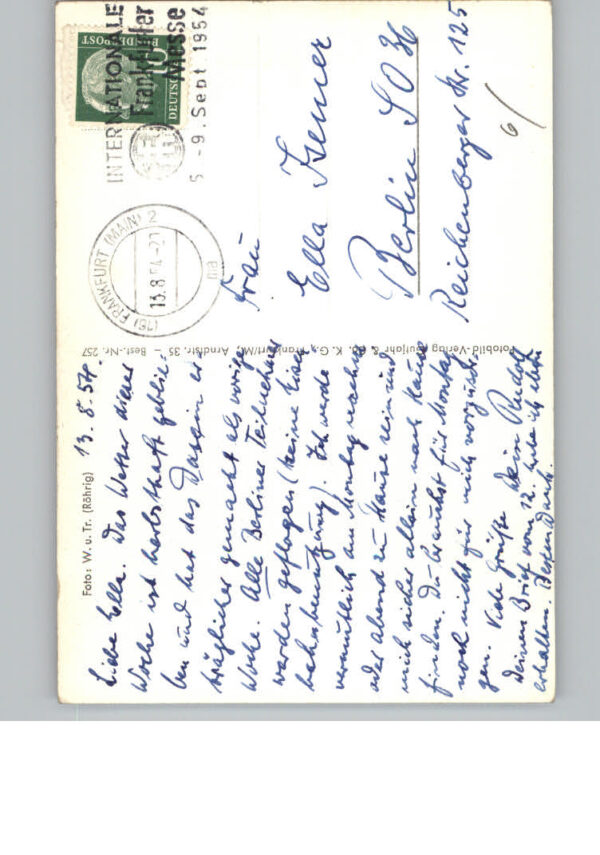 13. 8. 54.
Liebe Ella. Das Wetter dieser
Woche ist herbsthaft geblie-
ben und hat das Dasein er-
träglicher gemacht als vorige
Woche. Alle Berliner Teilnehmer
werden geflogen (keine Eisen-
bahnbenutzung). Ich werde
vermutlich am Montag nachm.
oder abend zu Hause sein und
mich sicher allein nach Hause
finden. Du brauchst für Montag
noch nicht für mich vorzusor-
gen. Viele Grüße Dein Rudolf
Deinen Brief vom 12. habe ich
erhalten. Besten Dank.
Foto: W. u. Tr. (Röhrig)
Fotobild-Verlag & Co. K. G., Frankfurt/M., Arndtstr. 35 – Best.-Nr. 257
INTERNATIONALE
Frankfurter
Messe
5.-9. Sept. 1954
DEUTSCHE
BUNDESPOST
10
(16) FRANKFURT (MAIN) 2
13.8.54-21
ma
Frau
Ella
Berlin SO 36
Reichenberger Str. 125
6/